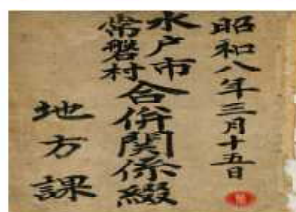 昭和八年三月十五日
水戸市
常磐村
合併関係綴
地方課